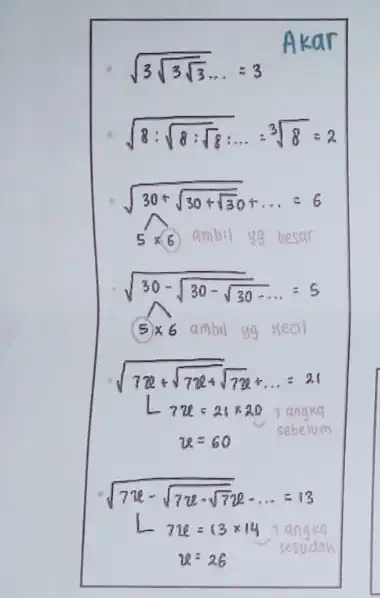 Akar
√3√3√3... = 3
√8:√8:√8:... = ³√8 = 2
√30+√30+√30+... = 6
5 x 6 ambil yg besar
√30-√30-√30-... = 5
5 x 6 ambil yg kecil
√7x+√7x+√7x+... = 21
7x = 21 x 20 1 angka
sebelum
x = 60
√7x-√7x-√7x-... = 13
7x = 13 x 14 1 angka
sesudah
x = 26